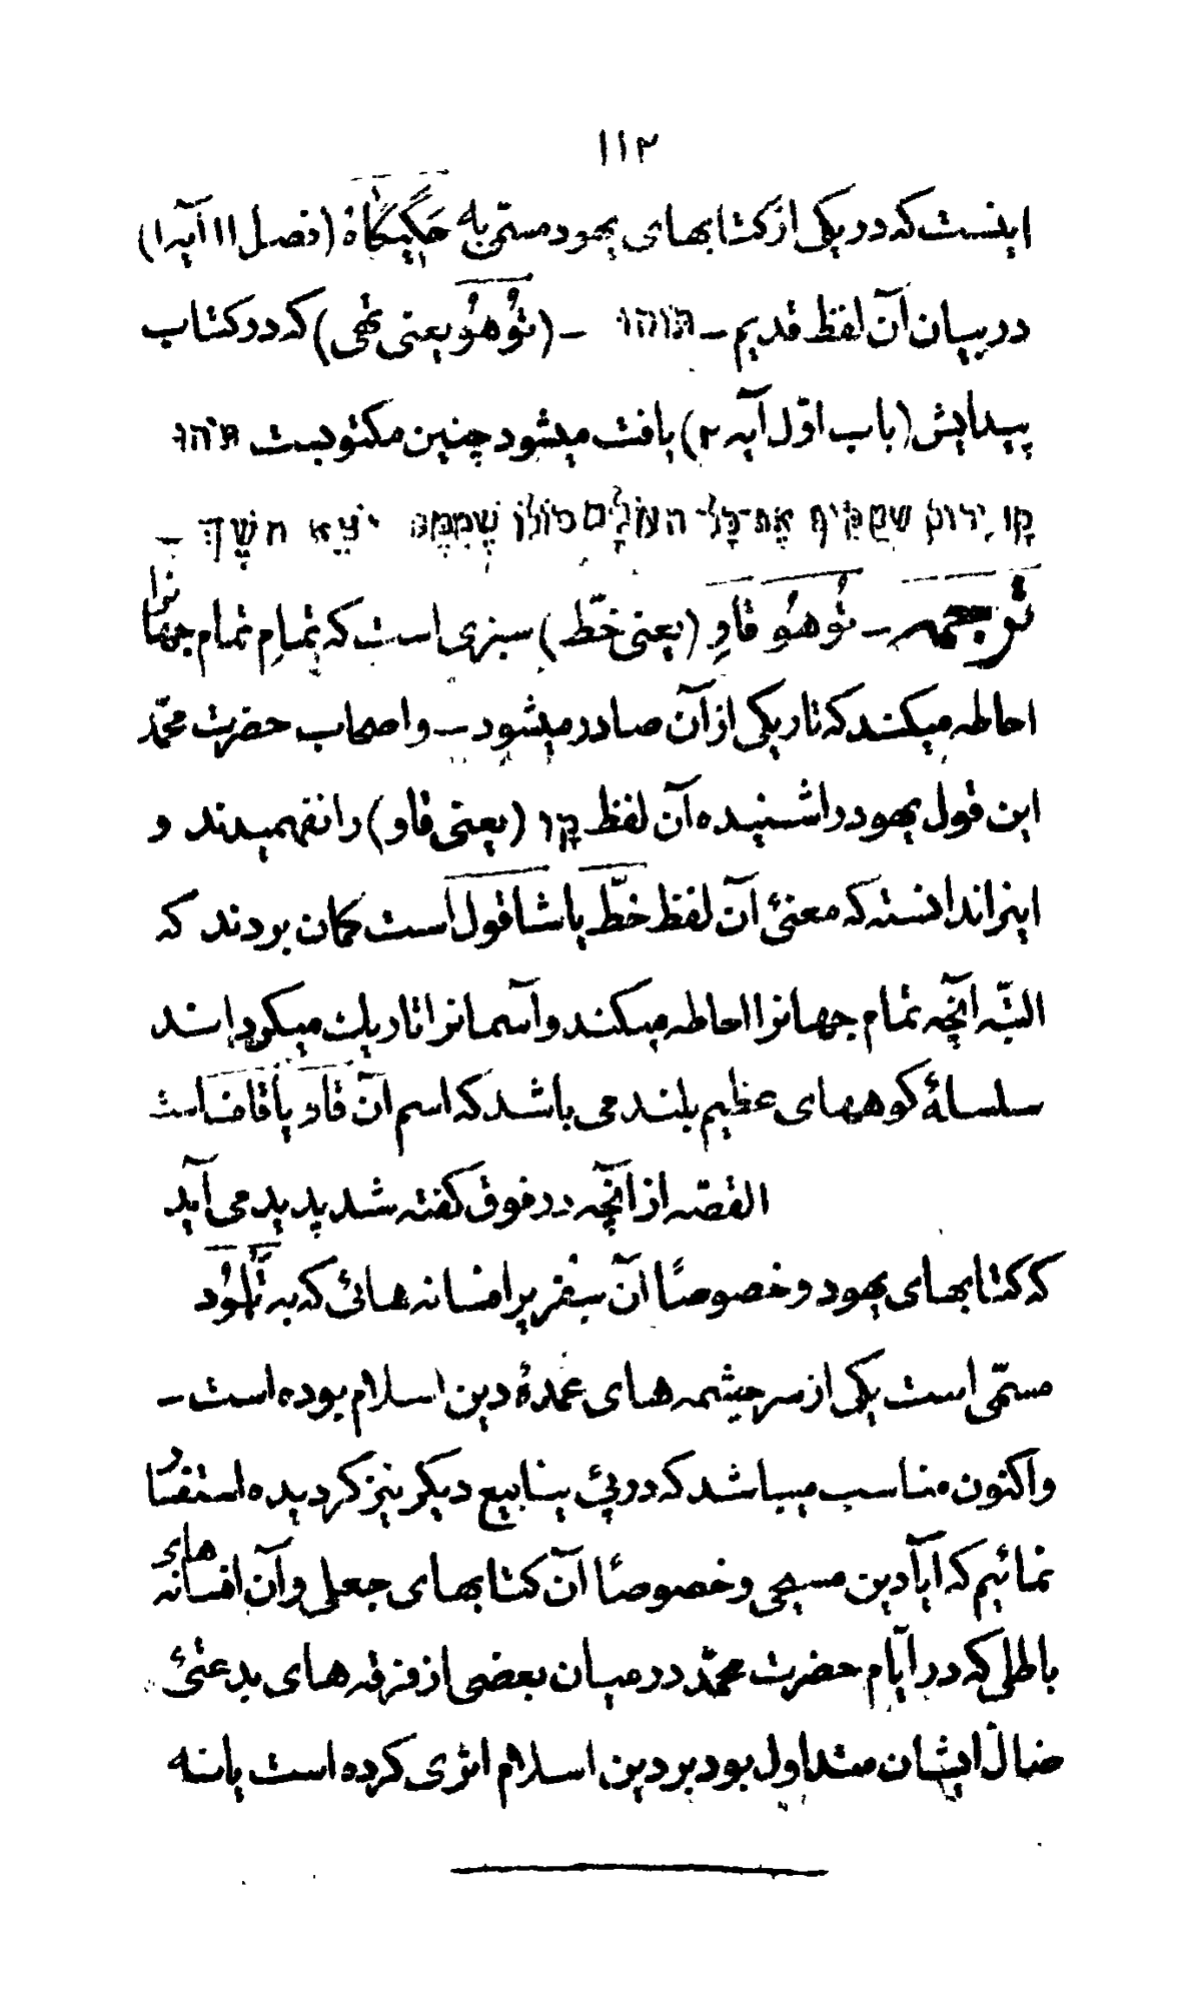 ١١٢
اینست که در یکی از کتابهای یهود مسمّی به حَگِیگاهْ (فصل ١١ آیه ١)
در بیان آن لفظ قدیم ـ תוהו ـ (تُوهُو یعنی تهی) که در کتاب
پیدایش (باب اوّل آیه ٢) یافت میشود چنین مکتوبست תהו
קָו ירוק שמקיף את־כָּל־ העולָם כולו שֶׁמִמנה יצא חשֶׁךְ ـ
ترجمه ـ تُوهُو قاوِ (یعنی خطّ) سبزی است که تمامِ تمام جهانرا
احاطه میکند که تاریکی از آن صادر میشود ـ و اصحاب حضرت محمّد
این قول یهود را شنیده آن لفظ קָו (یعنی قاو) را نفهمیدند و
اینرا ندانسته که معنیٔ آن لفظ خطّ یا شاقول است گمان بردند که
البتّه آنچه تمام جهانرا احاطه میکند و آسمانرا تاریک میگرداند
سلسلهٔ کوههای عظیم بلند می باشد که اسم آن قاو یا قاف است
القصّه از آنچه در فوق گفته شد پدید می آید
که کتابهای یهود و خصوصًا آن سِفر پر افسانه هائی که به تَلمُود
مسمّی است یکی از سرچشمه های عمدهٔ دین اسلام بوده است ـ
و اکنون مناسب میباشد که در پیٔ ینابیع دیگر نیز گردیده استفسار
نمائیم که آیا دین مسیحی و خصوصًا آن کتابهای جعلی و آن افسانه های
باطلی که در ایّام حضرت محمّد در میان بعضی از فرقه های بدعتیٔ
ضالّ ایشان متداول بود بر دین اسلام اثری کرده است یا نه